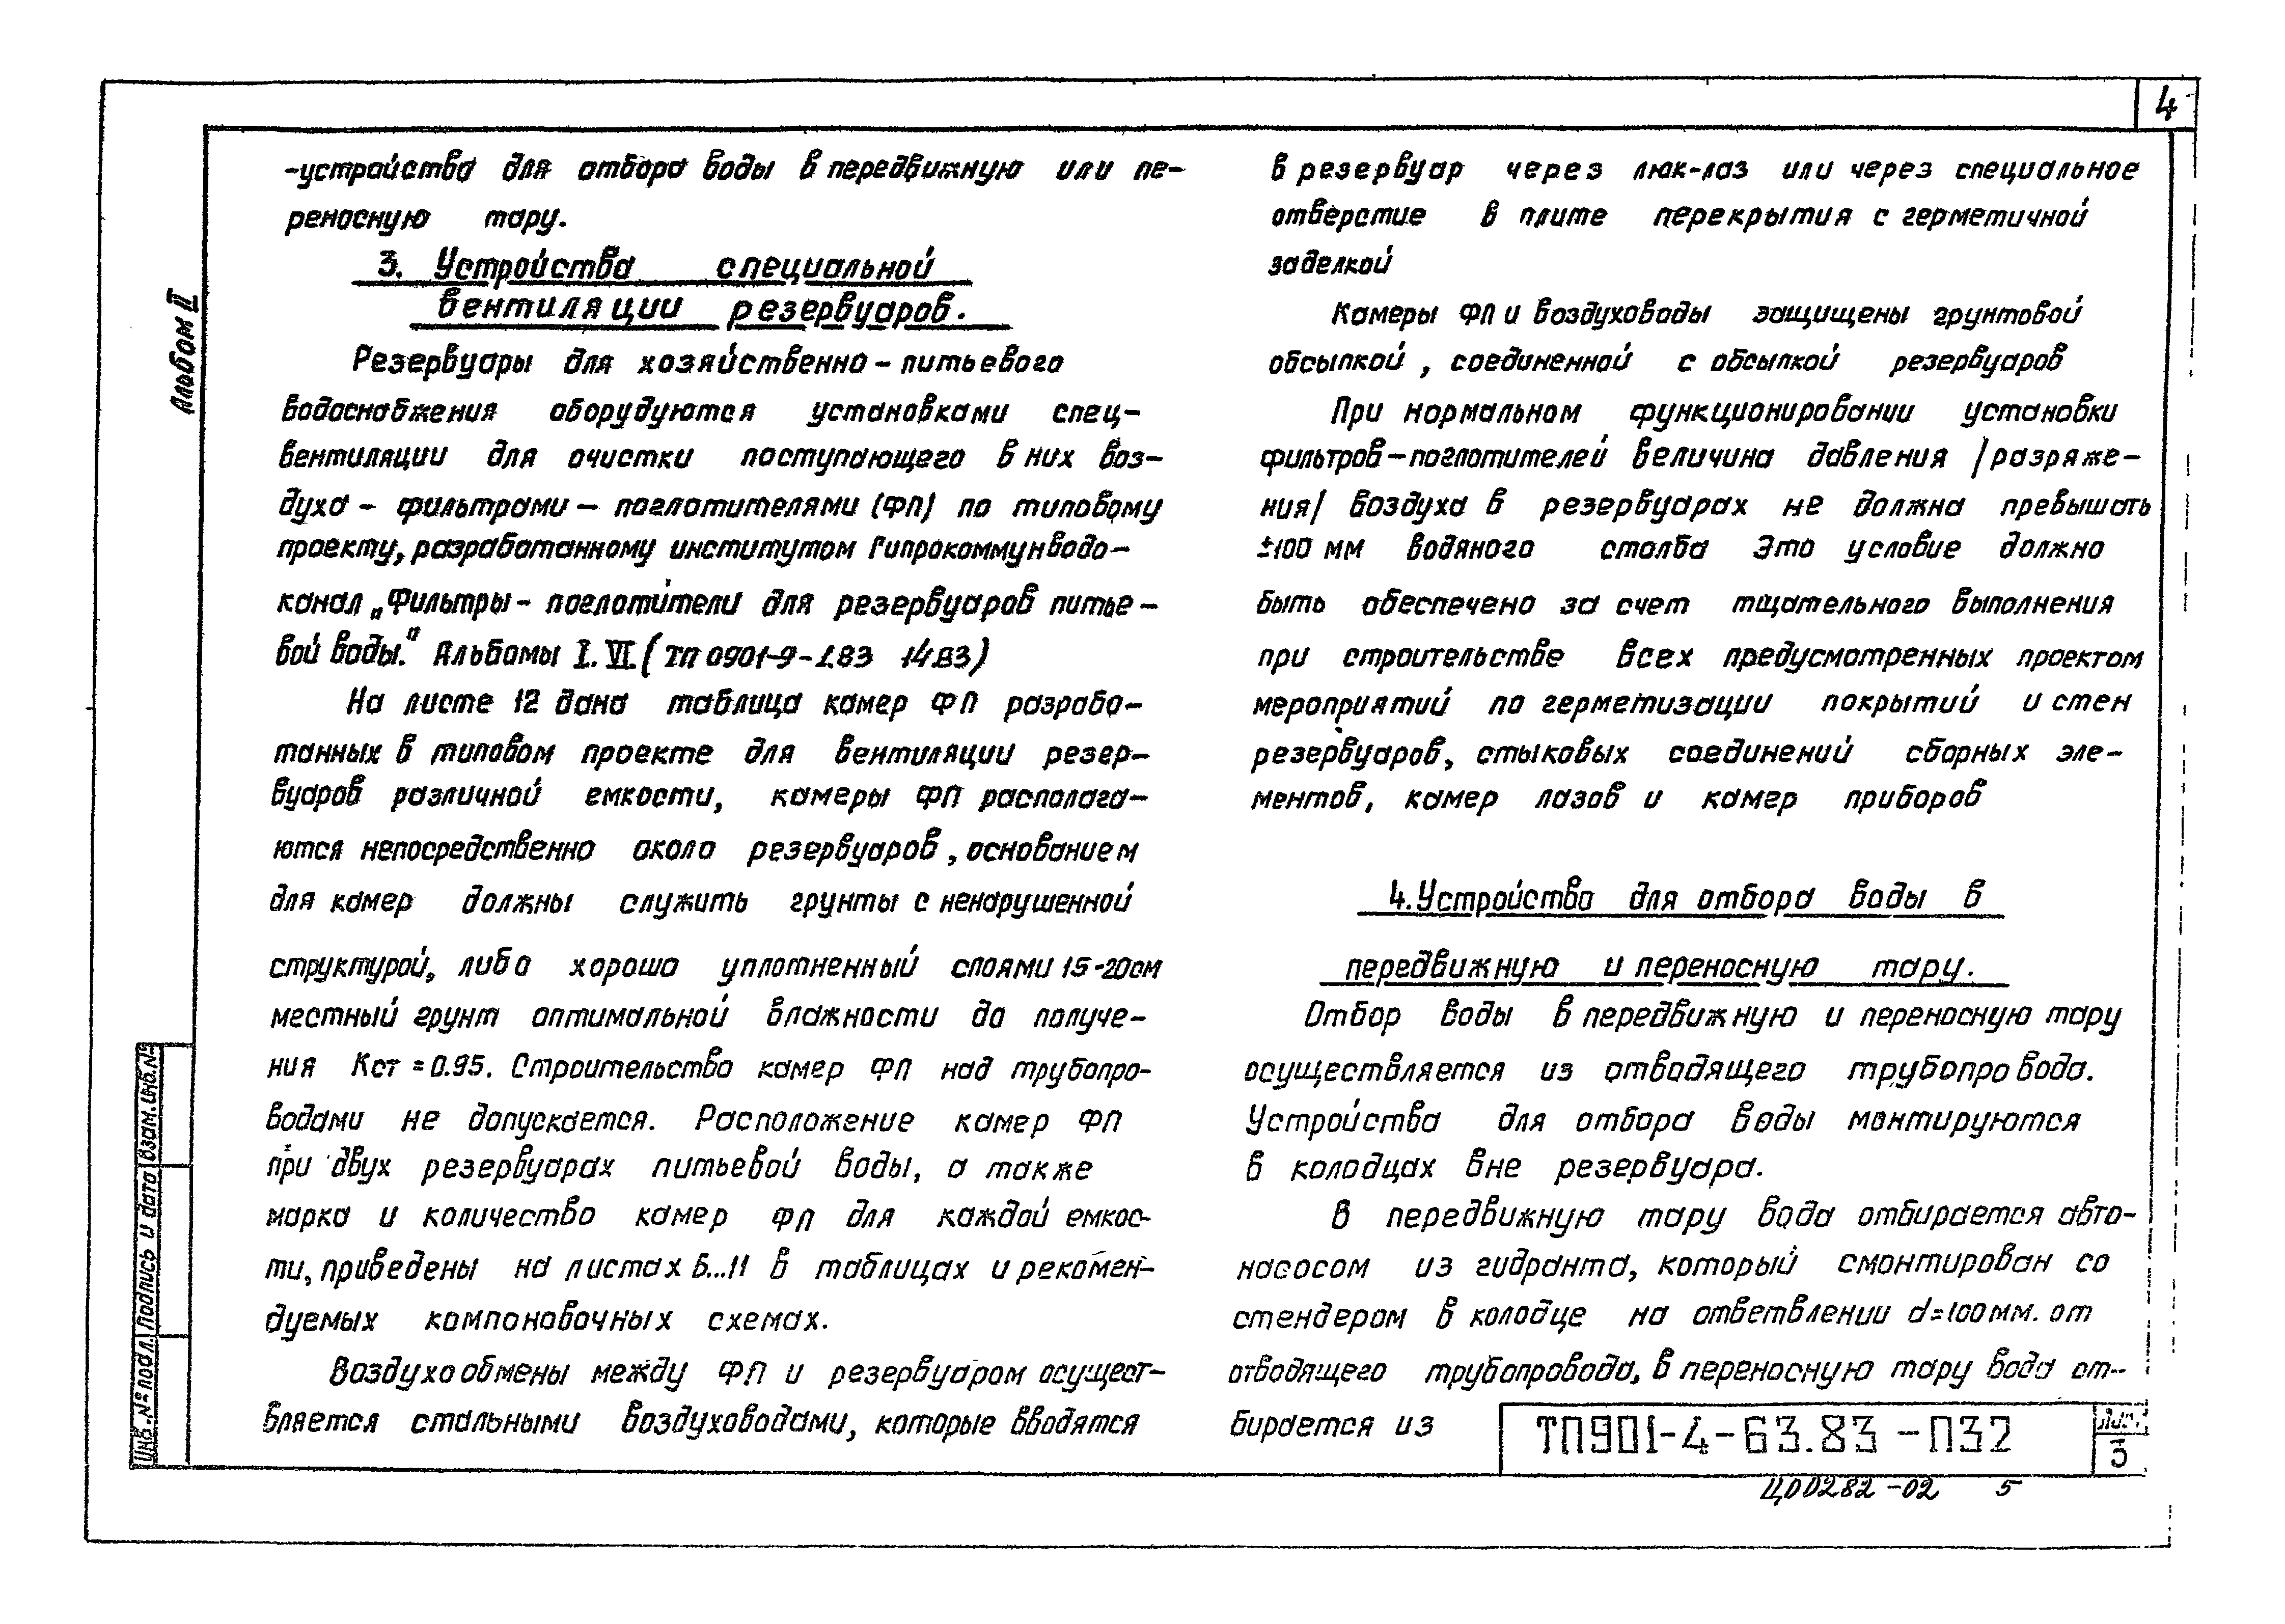 4
Альбом II
-устройства для отбора воды в передвижную или пе-
реносную тару.
3. Устройства специальной
вентиляции резервуаров.
Резервуары для хозяйственно-питьевого
водоснабжения оборудуются установками спец-
вентиляции для очистки поступающего в них воз-
духа - фильтрами - поглотителями (ФП) по типовому
проекту, разработанному институтом Гипрокоммунводо-
канал „Фильтры-поглотители для резервуаров питье-
вой воды." Альбомы I. VI. (ТП 0901-9-
На листе 12 дана таблица камер ФП разрабо-
танных в типовом проекте для вентиляции резер-
вуаров различной емкости, камеры ФП располага-
ются непосредственно около резервуаров, основанием
для камер должны служить грунты с ненарушенной
структурой, либо хорошо уплотненный слоями 15-20см
местный грунт оптимальной влажности до получе-
ния Кст=0.95. Строительство камер ФП над трубопро-
водами не допускается. Расположение камер ФП
при двух резервуарах питьевой воды, а также
марка и количество камер ФП для каждой емкос-
ти, приведены на листах 6...11 в таблицах и рекомен-
дуемых компоновочных схемах.
Воздухообмены между ФП и резервуаром осущест-
вляется стальными воздуховодами, которые вводятся
в резервуар через люк-лаз или через специальное
отверстие в плите перекрытия с герметичной
заделкой
Камеры ФП и воздуховоды защищены грунтовой
обсыпкой, соединенной с обсыпкой резервуаров
При нормальном функционировании установки
фильтров-поглотителей величина давления /разряже-
ния/ воздуха в резервуарах не должна превышать
±100 мм водяного столба Это условие должно
быть обеспечено за счет тщательного выполнения
при строительстве всех предусмотренных проектом
мероприятий по герметизации покрытий и стен
резервуаров, стыковых соединений сборных эле-
ментов, камер лазов и камер приборов
4. Устройства для отбора воды в
передвижную и переносную тару.
Отбор воды в передвижную и переносную тару
осуществляется из отводящего трубопровода.
Устройства для отбора воды монтируются
в колодцах вне резервуара.
В передвижную тару вода отбирается авто-
насосом из гидранта, который смонтирован со
стендером в колодце на ответвлении d=100мм. от
отводящего трубопровода, в переносную тару вода от-
бирается из
ТП901-4-63.83-ПЗ2
Лист
3
ЦО0282-02 5
Инв.№ подл. Подпись и дата Взам.инв.№